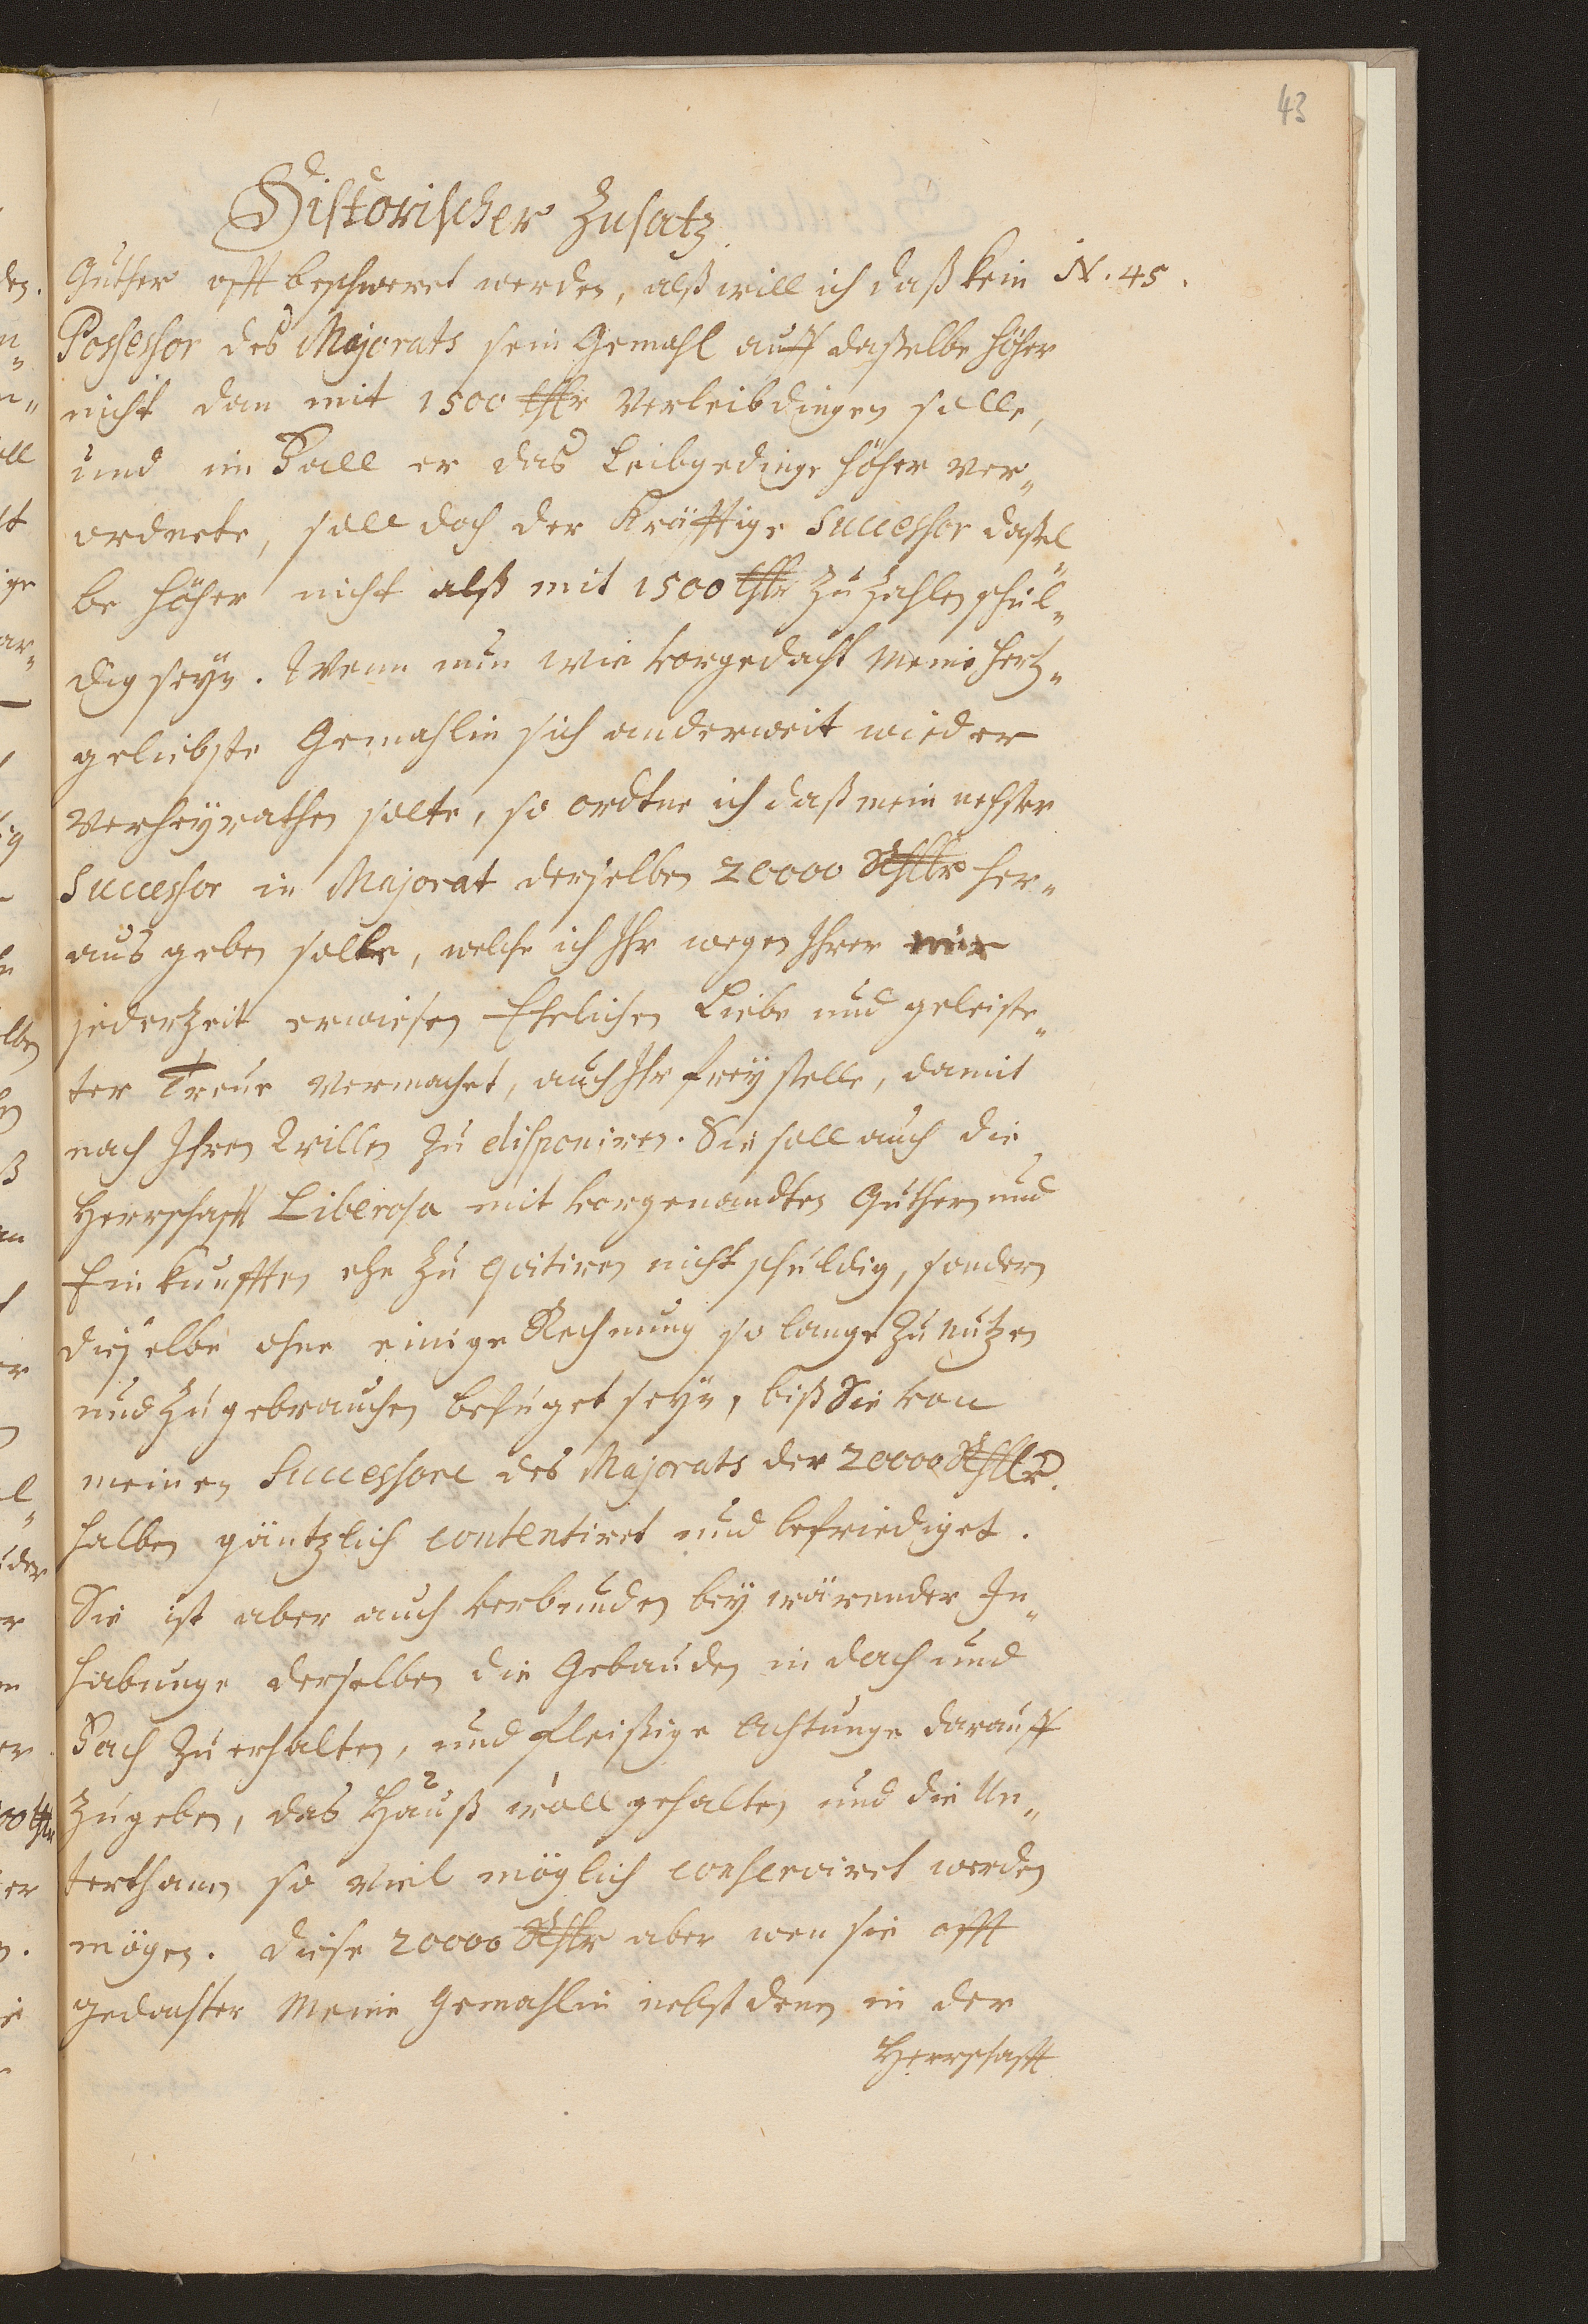 43
Historischer Zusatz.
Güther offt beschweret werden, alß will ich daß kein N. 45.
Possessor des Majorats sein Gemahl auff daßelbe höher
nicht dan mit 1500 thlr Verleibdingen solle,
und im Fall er das Leibgedinge höher ver„
ordnete, soll doch der Kräfftige Successor daßel„
be höher nicht alß mit 1500 thlr zu zahlen schul„
dig seyn. Wenn nun wie vorgedacht meine hertz„
geliebste Gemahlin sich anderweit wieder
verheyrathen solte, so ordtne ich daß mein nehster
Successor in Majorat derselben 20000 Rthlr her„
aus geben solle, welche ich Ihr wegen Ihrer mir
jederzeit erwiesen Ehelichen Liebe und geleiste„
ter Treue vermachet, auch Ihr frey stelle, damit
nach Ihren Willen zu disponiren. Sie soll auch die
Herrschafft Liberosa mit vorgenandten Güthern und
Einkunfften ehe zu qvitiren nicht schuldig, sondern
dieselbe ohne einige Rechnung so lange zu nutzen
und zu gebrauchen befuget seyn, biß Sie von
meinen Successore des Majorats der 20000 Rthlr.
halben gäntzlich contentiret und befriediget.
Sie ist aber auch verbunden bey wärender In„
habunge derselben die Gebauden in dach und
Fach zu erhalten, und fleißige Achtunge darauff
zu geben, das Hauß woll gehalten und die Un„
terthanen so viel möglich conserviret werden
mögen. Diese 20000 Rthlr aber wen sie offt
gedachter meine Gemahlin nebst denen in der
Herrschafft